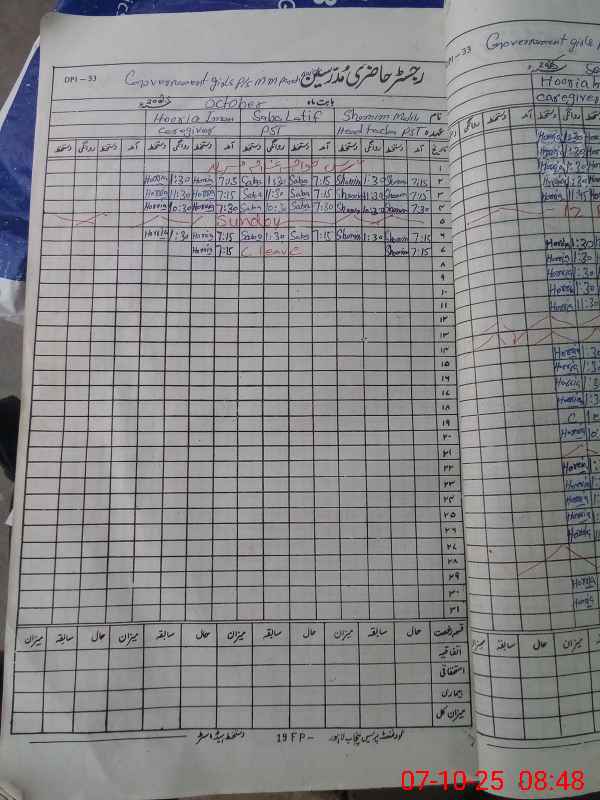 DPI-33 Government girls P/S M M رجسٹر حاضری مدرسین
2025 October بابت ماہ
Hooria Iman Saba Latif Shamim Malik نام
Caregiver PST Head Teacher PST عہدہ
دستخط روانگی دستخط آمد دستخط روانگی دستخط آمد دستخط روانگی دستخط آمد دستخط روانگی دستخط آمد تاریخ
۱
Hooria 1:30 Hooria 7:15 Saba 1:30 Saba 7:15 Shamim 1:30 Shamim 7:15 ۲
Hooria 11:30 Hooria 7:15 Saba 11:30 Saba 7:15 Shamim 11:30 Shamim 7:15 ۳
Hooria 10:30 Hooria 7:30 Saba 10:30 Saba 7:30 Shamim 10:30 Shamim 7:30 ۴
Sunday ۵
Hooria 1:30 Hooria 7:15 Saba 1:30 Saba 7:15 Shamim 1:30 Shamim 7:15 ۶
Hooria 7:15 C leave Shamim 7:15 ۷
۸
۹
۱۰
۱۱
۱۲
۱۳
۱۴
۱۵
۱۶
۱۷
۱۸
۱۹
۲۰
۲۱
۲۲
۲۳
۲۴
۲۵
۲۶
۲۷
۲۸
۲۹
۳۰
۳۱
میزان سابقہ حال میزان سابقہ حال میزان سابقہ حال میزان سابقہ حال قسم رخصت
اتفاقیہ
استحقاقی
بیماری
میزان کل
دستخط ہیڈ ماسٹر 19 FP- گورنمنٹ پریس پنجاب لاہور
DPI-33 Government girls P/S
2025
Hooria
Caregiver
دستخط روانگی دستخط آمد
Hooria 1:30
Hooria 1:30
Hooria 1:30
Hooria 1:30
Hooria 11:45
Hooria 1:30
Hooria 1:30
Hooria 1:30
Hooria 1:30
Hooria 11:30
Hooria 1:30
Hooria
Hooria
Hooria
Hooria
Hooria
Hooria
Hooria
Hooria
Hooria
Hooria
Hooria
Hooria
سابقہ حال میزان
07-10-25 08:48